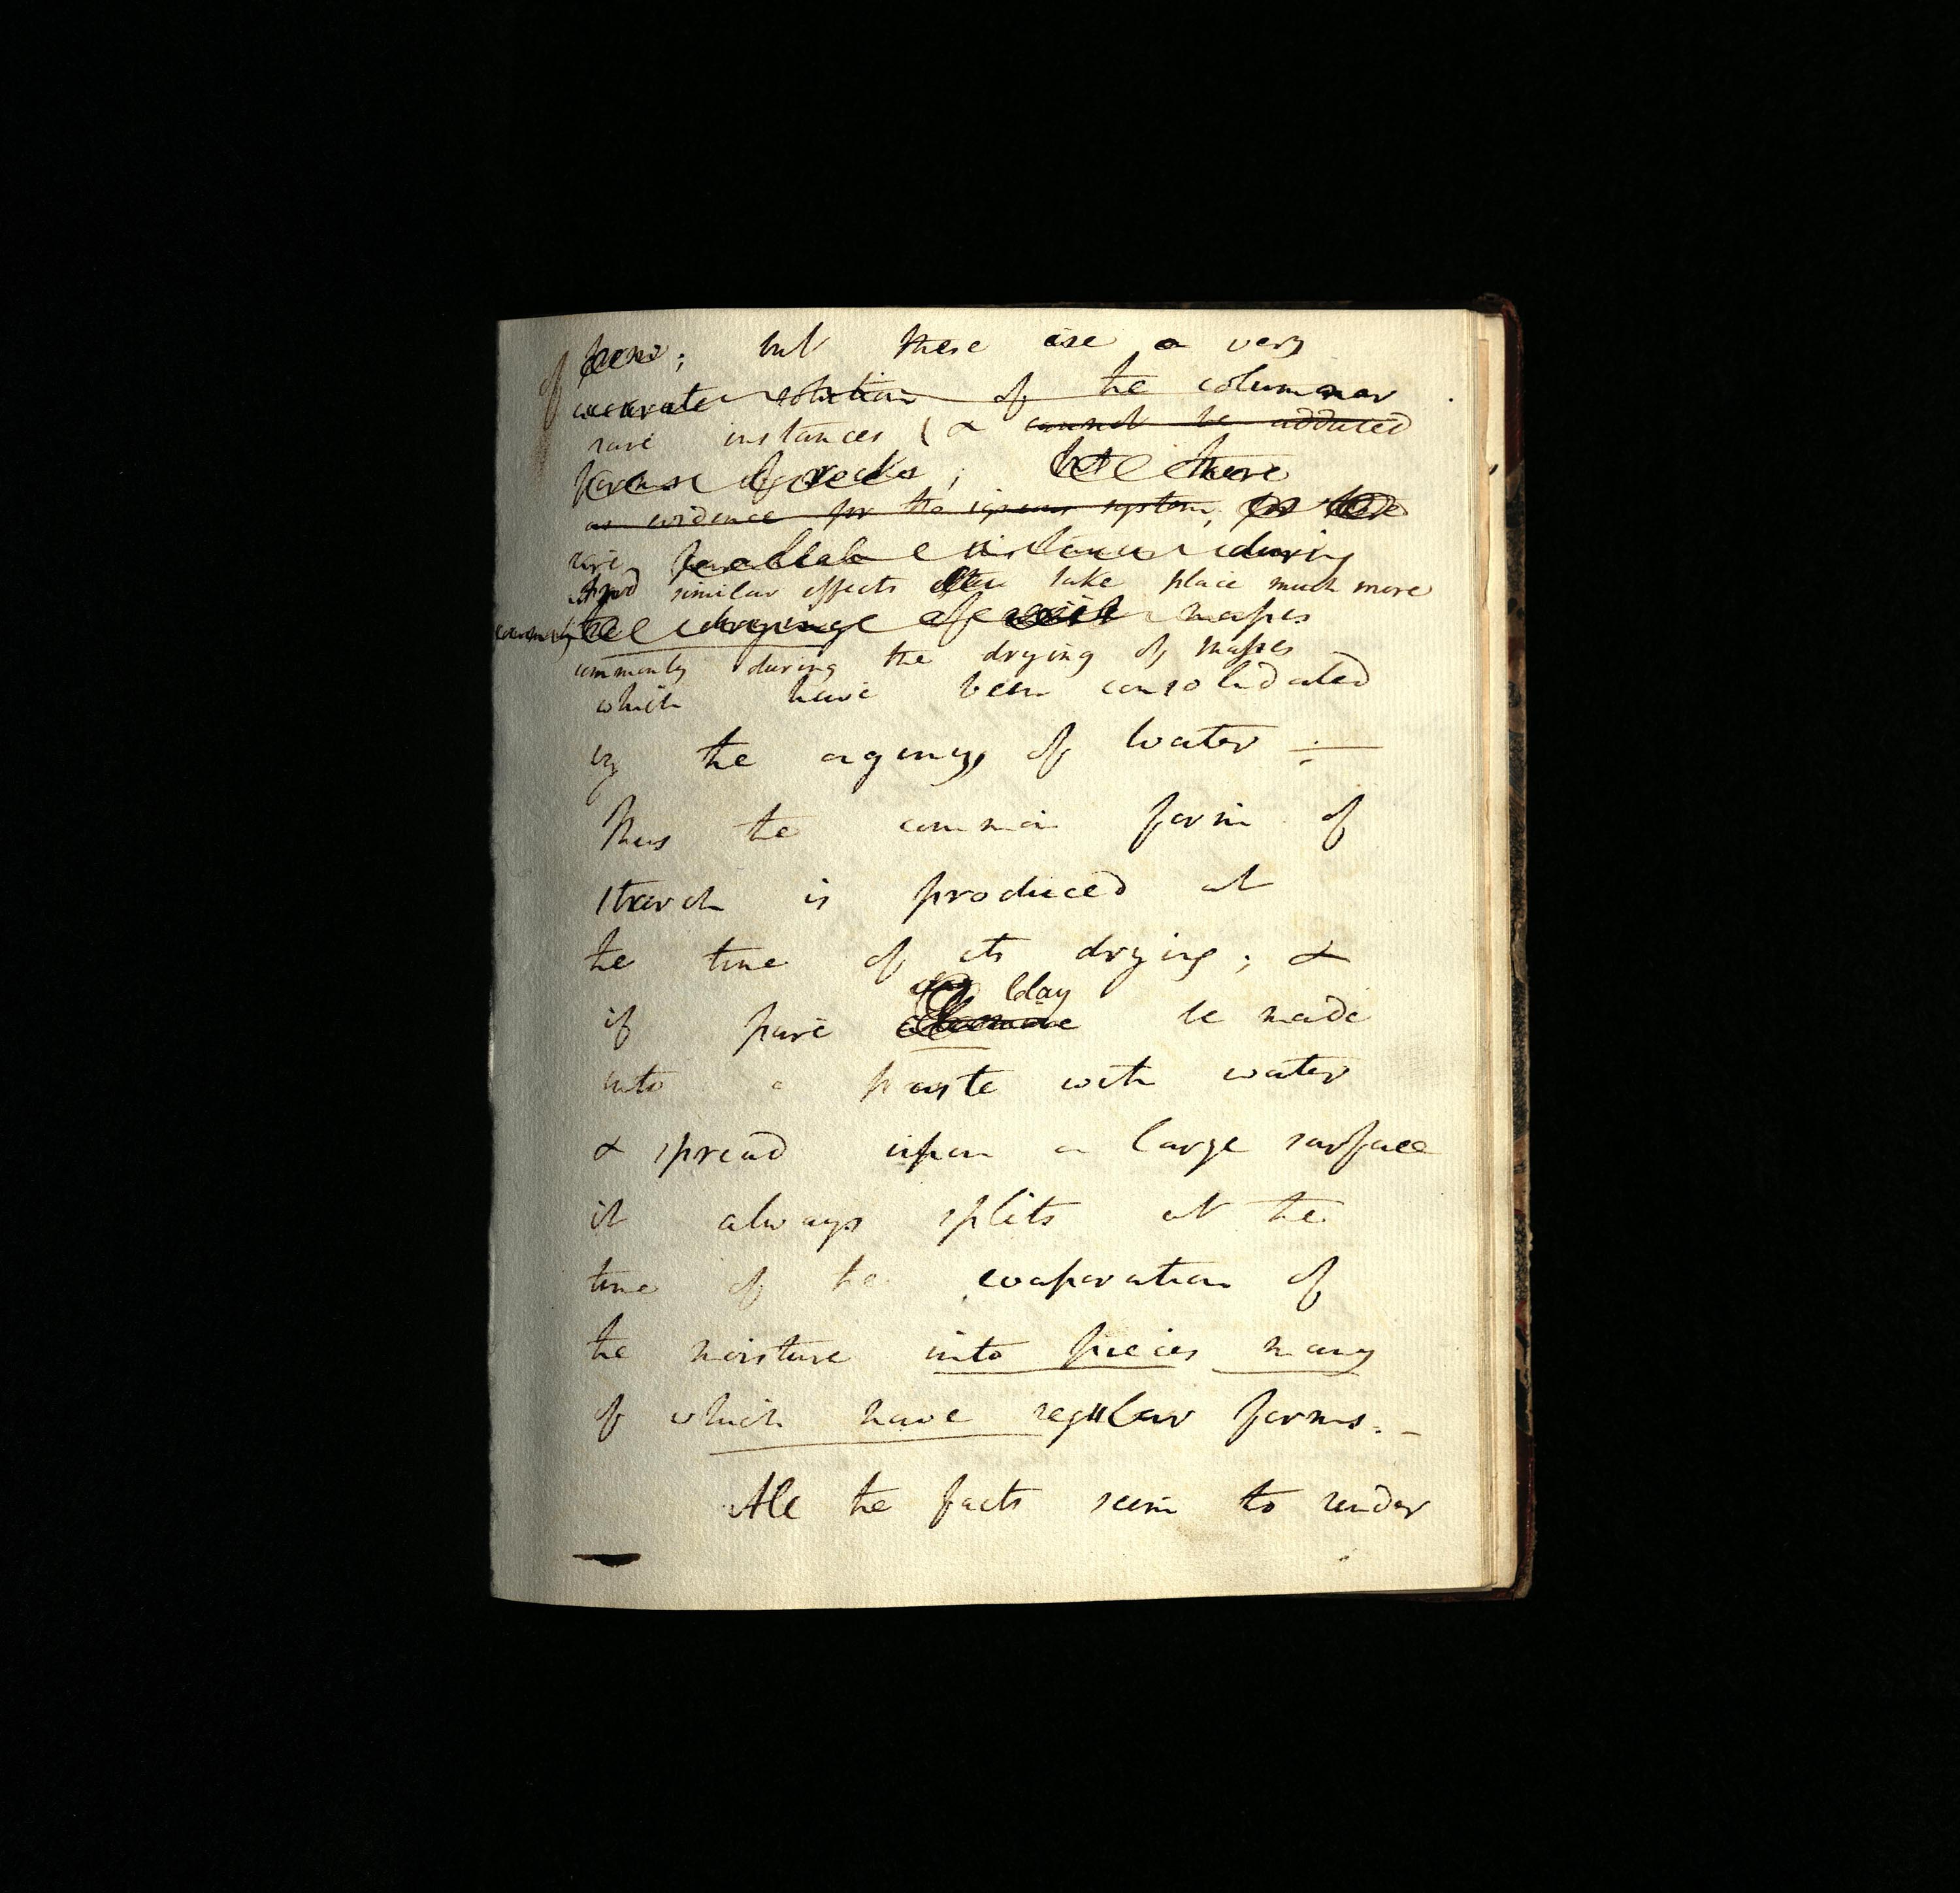 of form; but these are a very
accurate solution of the columnar
rare instances (& cannot be adduced
forms of rocks; but there
as evidence for the igneous system,
are parallel instances during
And similar effects often take place much more
the drying of masses
commonly during the drying of masses
which have been consolidated
by the agency of water ÷
Thus the common form of
starch is produced at
the time of its drying; &
clay
if pure alumine be made
into a paste with water
& spread upon a large surface
it always splits at the
time of the evaporation of
the moisture into pieces many
of which have regular forms. –
All the facts seem to render